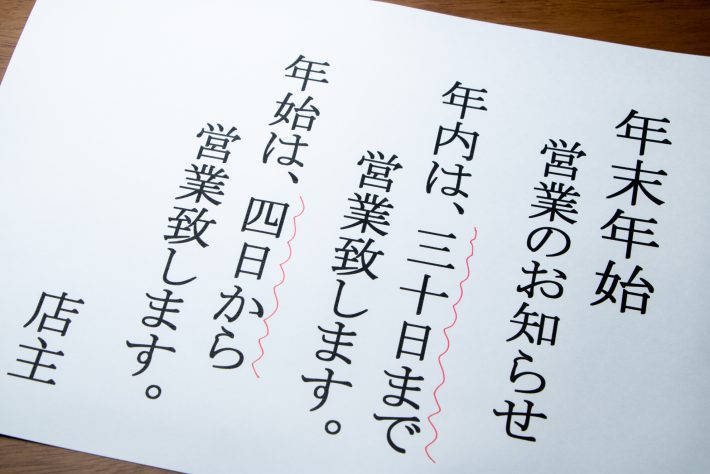 年末年始
営業のお知らせ
年内は、三十日まで
営業致します。
年始は、四日から
営業致します。
店主